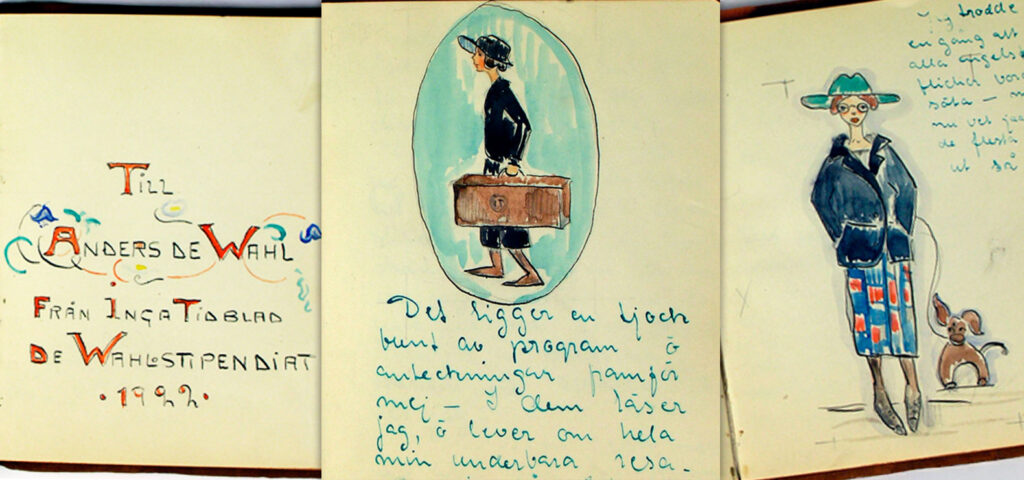 TILL
ANDERS DE WAHL
FRÅN INGA TIDBLAD
DE WAHLSTIPENDIAT
·1922·
Det ligger en tjock
bunt av program ö
anteckningar framför
mej – I dem läser
jag, ö lever om hela
min underbara resa.
Jag trodde
en gång att
alla engelsk
flickor voro
söta –
nu vet jag
de flesta
ut så